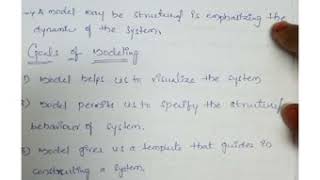 → A model may be structural is emphasizing the
dynamic of the system.
Goals of Modeling
1) Model helps us to visualize the system
2) Model permits us to specify the structure/
behaviour of system.
3) Model gives us a template that guides in
constructing a system.